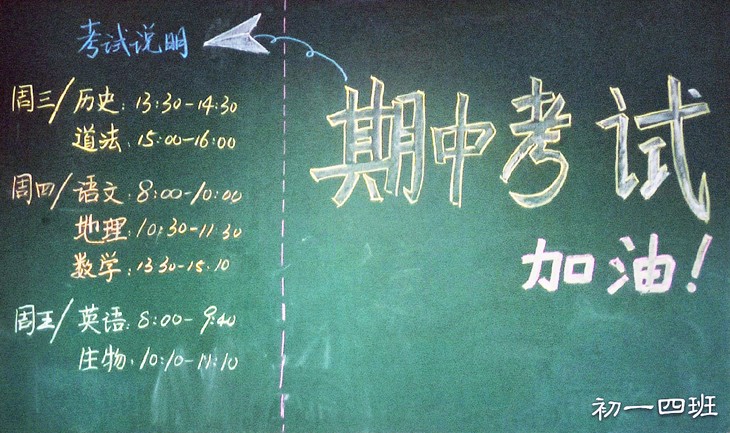 考试说明
周三/历史:13:30-14:30
道法:15:00-16:00
周四/语文:8:00-10:00
地理:10:30-11:30
数学:13:30-15:10
周五/英语:8:00-9:40
生物:10:10-11:10
期中考试
加油!
初一四班